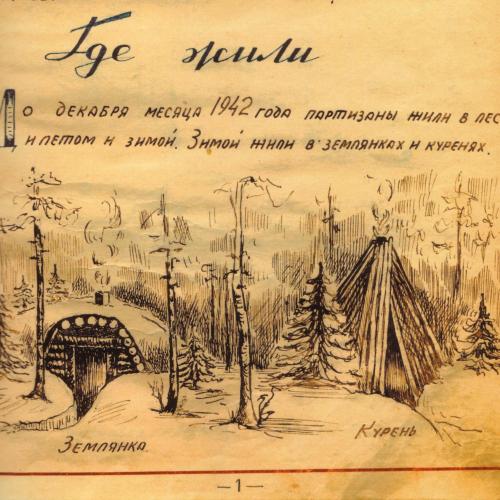 Где жили
До декабря месяца 1942 года партизаны жили в лес
и летом и зимой. Зимой жили в землянках и куренях.
Землянка
Курень
—1—